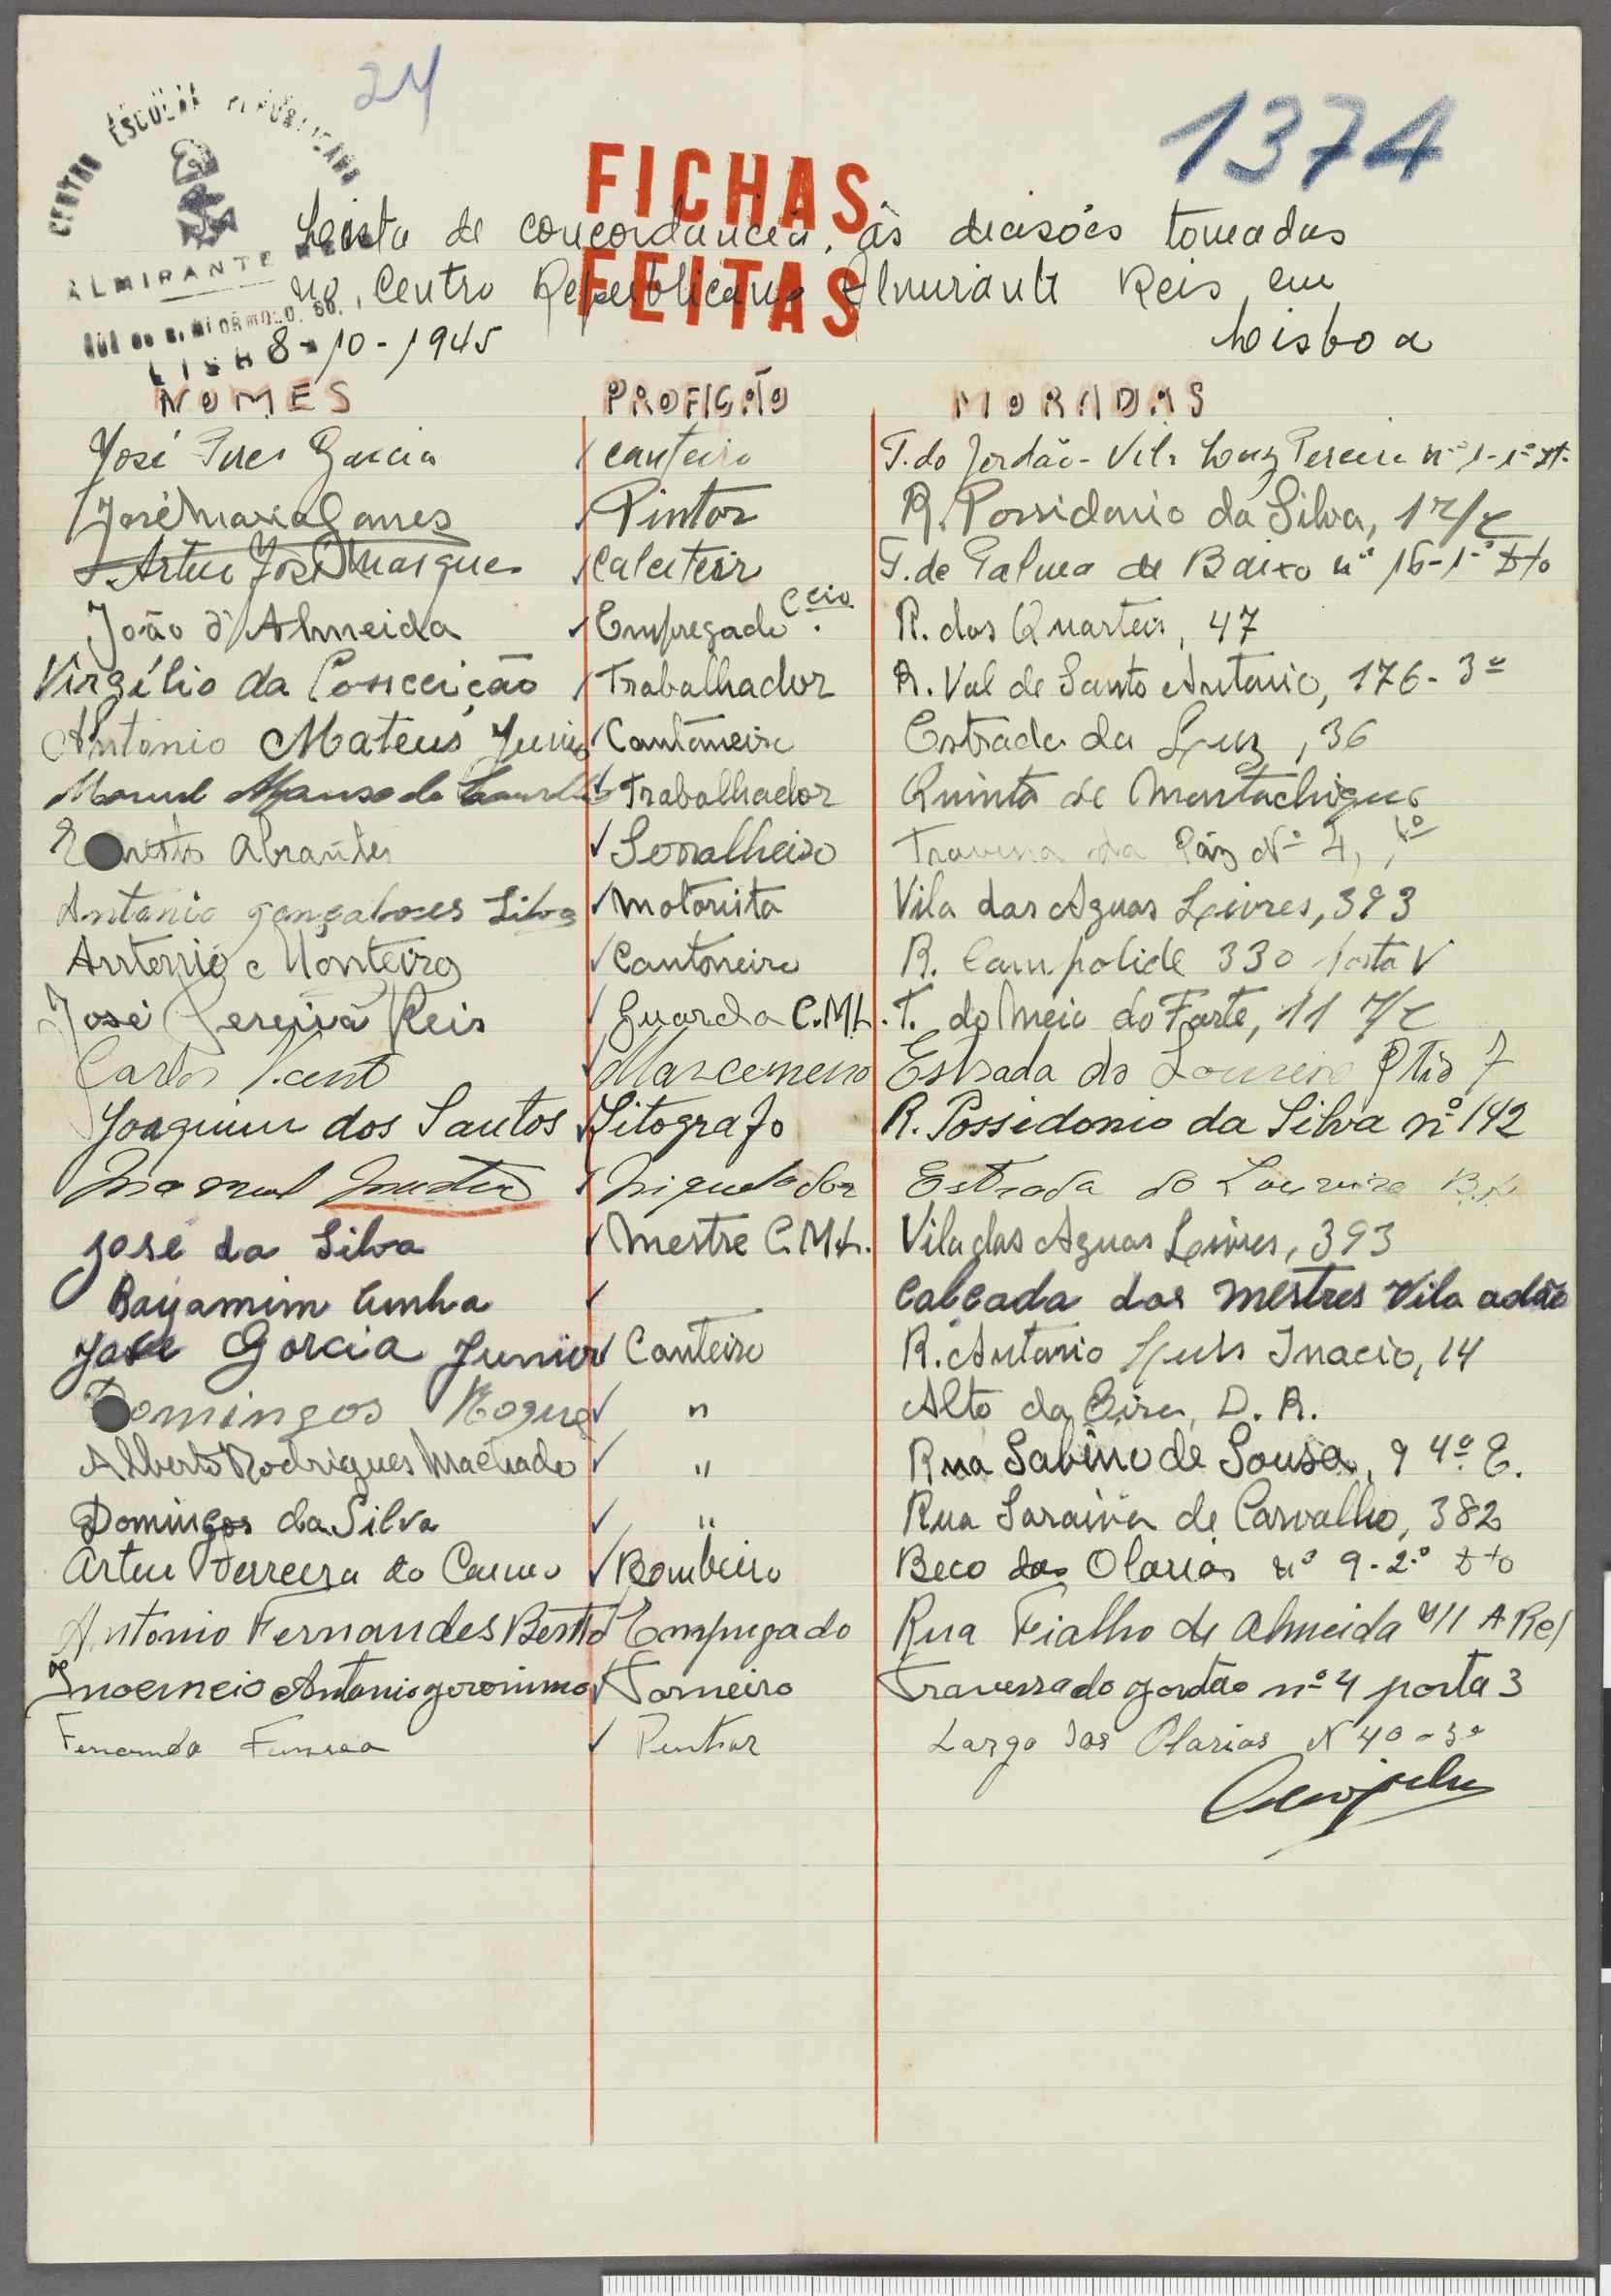 24
1374
CENTRO ESCOLAR REPUBLICANO
ALMIRANTE REIS
LISBOA
FICHAS
FEITAS
Lista de concordancia, às decisões tomadas
no, Centro Republicano Almirante Reis, em
8-10-1945 Lisboa
NOMES PROFIÇÃO MORADAS
José Pires Garcia canteiro T. do Jordão - Vila Luz Pereira nº 1-1º
José Maria Gomes Pintor R. Possidonio da Silva, 1 r/c
Artur José Marques Calceteiro T. de Palma de Baixo nº 16-1º Dto
João d'Almeida Empregado Ccio. R. dos Quarteis, 47
Virgílio da Conceição Trabalhador R. Val de Santo Antonio, 176-3º
Antonio Mateus Junior Cantoneiro Estrada da Luz, 36
Manuel Afonso Trabalhador Quinta de Montachique
Abrantes Serralheiro Travessa da Páz Nº 4, 1º
Antonio gonçalves Silva Motorista Vila das Aguas Livres, 393
Antonio Monteiro Cantoneiro R. Campolide 330 porta V
José Pereira Reis Guarda C.M.L. T. do Meio do Forte, 11 r/c
Carlos Vicente Marceneiro Estrada do Loureiro Ptio 7
Joaquim dos Santos Litografo R. Possidonio da Silva nº 142
Manuel Niquelador Estrada do Loureiro
José da Silva Mestre C.M.L. Vila das Aguas Livres, 393
Bayamim Cunha Calcada dos mestres Vila adão
José Garcia Junior Canteiro R. Antonio Luis Inacio, 14
Domingos Roque " Alto da Eira, D. R.
Alberto Rodrigues Machado " Rua Sabino de Sousa, 9 4º E.
Domingos da Silva " Rua Saraiva de Carvalho, 382
Artur Ferreira do Carmo Bombeiro Beco das Olarias nº 9-2º Dto
Antonio Fernandes Bento Empregado Rua Fialho de Almeida
Antonio geronimo Torneiro Travessa do Jordão nº 4 porta 3
Fernando Fonseca Pintor Largo das Olarias N 40-3º